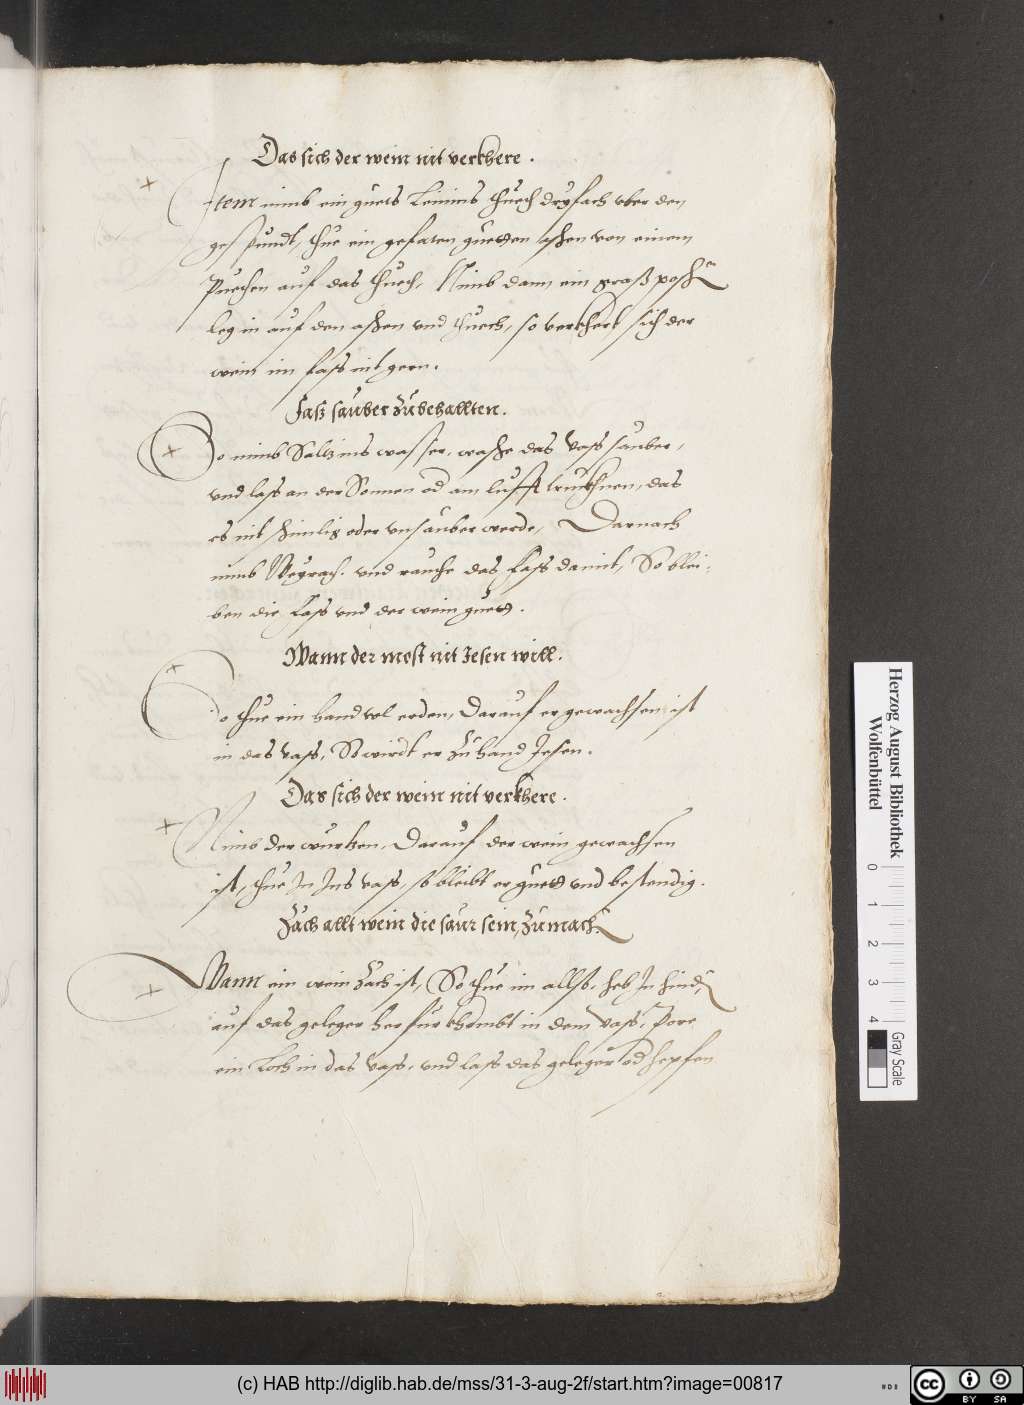 Das sich der wein nit verkhere .
Item nimb ein guets Leinins thuech dryfach vber den
gespundt, thue ein gefaten gueten aschen von einem
Puechen auf das thuech, Nimb dann ein graß
leg in auf den aschen vnd thuech, so verkhert sich der
wein im fass nit gern .
Fasß sauber zubehallten .
So nimb Saltz ins wasser, wasche das Vass sauber,
vnd lass an der Sonnen od am lufft truckhnen, das
es nit oder vnsauber werde, Darnach
nimb Weyrach . vnd rauche das fass damit, So blei-
ben die fass vnd der wein guet .
Wann der most nit Jesen will .
So thue ein hand vol erden, Darauf er gewachsen ist
in das vass, So wirdt er zu hand Jesen .
Das sich der wein nit verkhere .
Nimb der wurtzen, Darauf der wein gewachsen
ist, thue In Ins vass, so bleibt er guet vnd bestendig .
Zach allt wein die saur sein, zumach
Wann ein wein zach ist, So thue im allso, heb In hind
auf das geleger herfur khombt in dem vass, Pore
ein Loch in das vass, vnd lass das geleger od hepfen
Herzog August Bibliothek
Wolfenbüttel
0 1 2 3 4
Gray Scale
(c) HAB http://diglib.hab.de/mss/31-3-aug-2f/start.htm?image=00817
cc BY SA